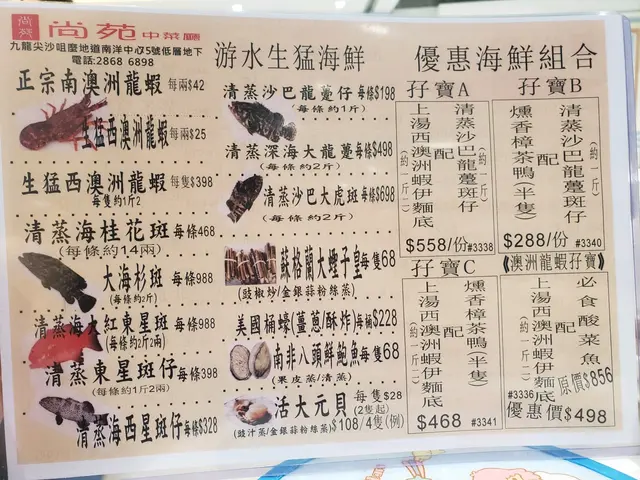 尚苑
尚苑 中菜廳
九龍尖沙咀麼地道南洋中心75號低層地下
電話:2868 6898
正宗南澳洲龍蝦 每兩$42
生猛西澳洲龍蝦 每兩$25
生猛西澳洲龍蝦 每隻$398
每隻約1斤2
清蒸海桂花斑 每條468
(每條約14兩)
大海杉斑 每條988
(每條約2斤)
清蒸海大紅東星斑 每條988
(每條約2斤2兩)
清蒸東星斑仔 每條398
(每條約1斤2兩)
清蒸海西星斑仔 每條$328
游水生猛海鮮
清蒸沙巴龍躉仔 每條$198
(每條約1斤)
清蒸深海大龍躉 每條$498
(每條約2斤)
清蒸沙巴大虎斑 每條$698
(每條約2斤)
蘇格蘭大蟶子皇 每隻68
(豉椒炒/金銀蒜粉絲蒸)
美國桶蠔(薑蔥/酥炸) 每桶$228
南非八頭鮮鮑魚 每隻68
(果皮蒸/清蒸)
活大元貝 每隻$28
(2隻起)
(豉汁蒸/金銀蒜粉絲蒸) $108/4隻(例)
優惠海鮮組合
孖寶A
清蒸沙巴龍躉斑仔(約一斤)
配
上湯西澳洲蝦伊麵底(約一斤二)
$558/份 #3338
孖寶B
清蒸沙巴龍躉斑仔(約一斤)
配
燻香樟茶鴨(半隻)
$288/份 #3340
孖寶C
燻香樟茶鴨(半隻)
配
上湯西澳洲蝦伊麵底(約一斤二)
$468 #3341
《澳洲龍蝦孖寶》
必食酸菜魚
配
上湯西澳洲蝦伊麵底
原價$856
#3336
優惠價$498